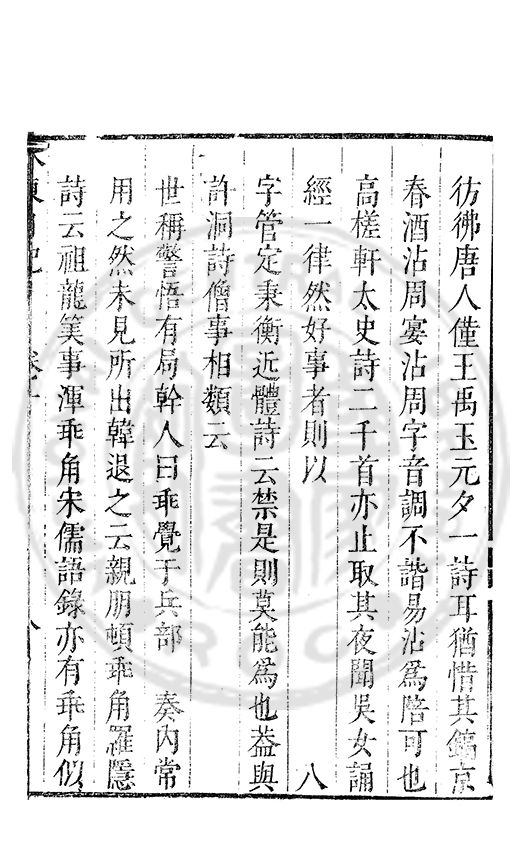 彷彿唐人僅王禹玉元夕一詩耳猶惜其鎬京
春酒沾周宴沾周字音調不諧易沾為陪可也
高槎軒太史詩二千首亦止取其夜聞吳女誦
經一律然好事者則以　　　　　　　　八
字管定秉衡近體詩云禁是則莫能為也葢與
許洞詩僧事相類云
世稱警悟有局幹人曰乖覺于兵部　奏內常
用之然未見所出韓退之云親朋頓乖角羅隱
詩云祖龍筭事渾乖角宋儒語錄亦有乖角似
水東日記　卷　八